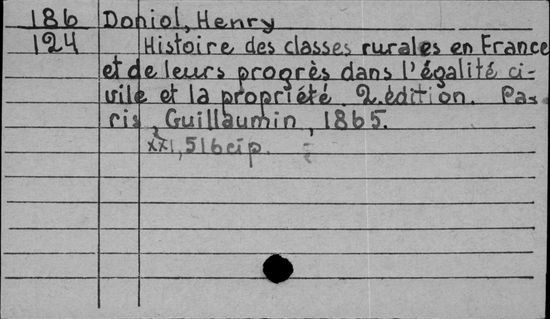 186 Doniol, Henry
124 Histoire des classes rurales en France
et de leurs progrès dans l'égalité ci-
vile et la propriété. 2.édition. Pa-
ris, Guillaumin, 1865.
XXI, 516 p.